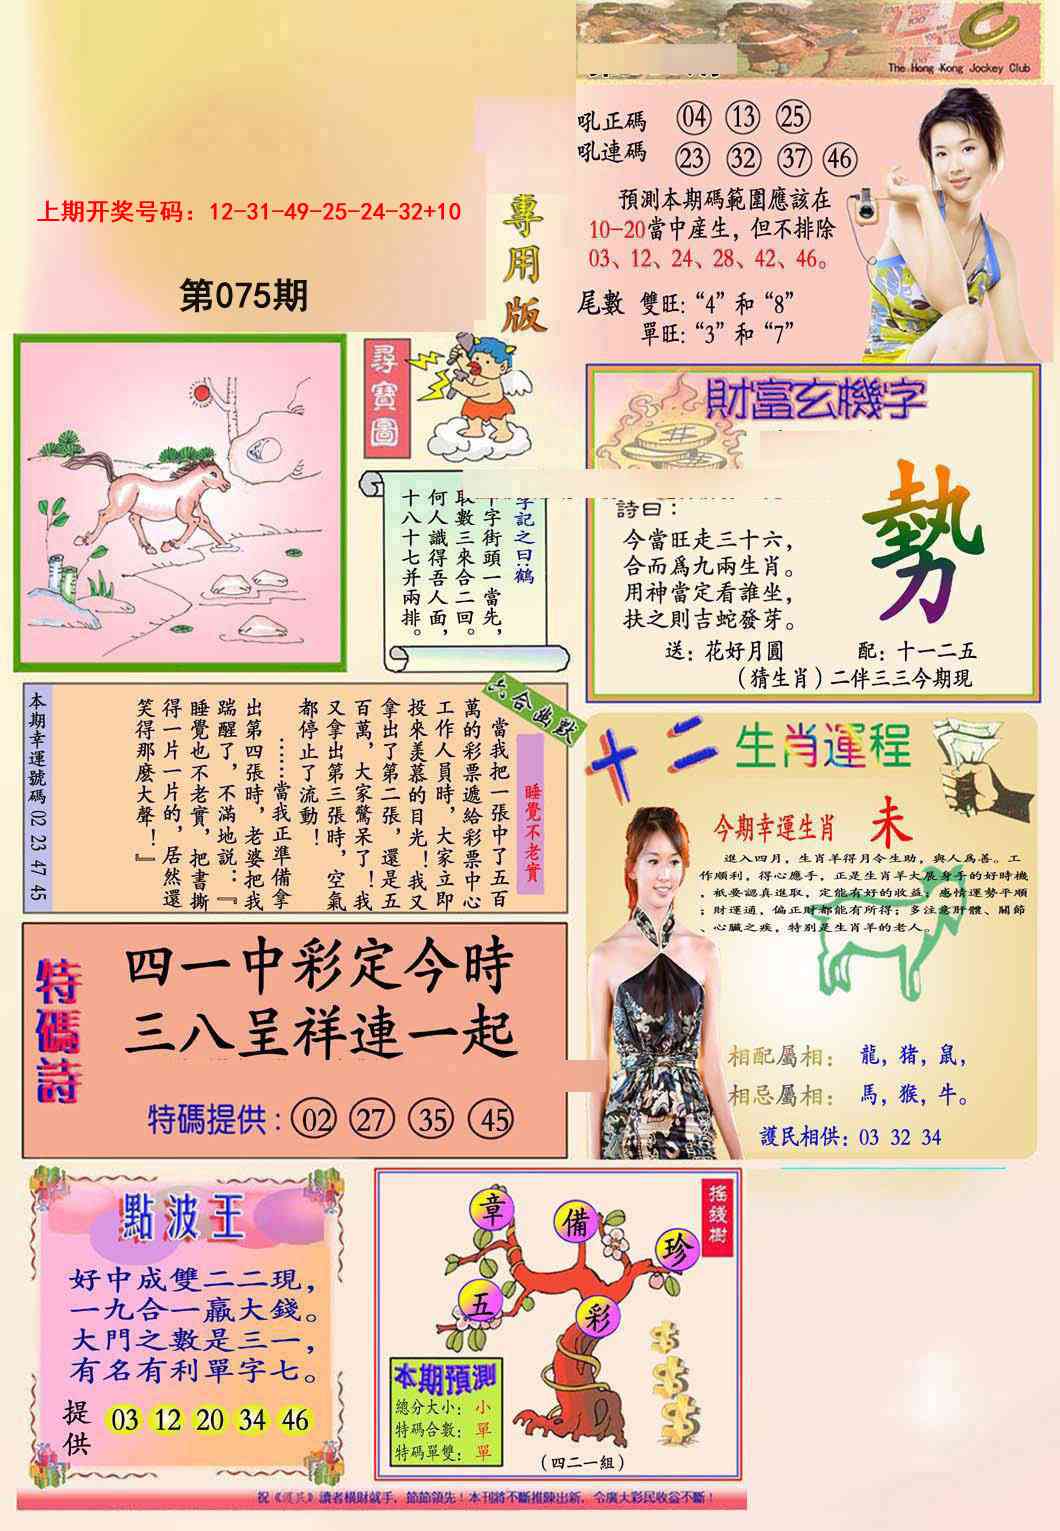 The Hong Kong Jockey Club
上期开奖号码：12-31-49-25-24-32+10
第075期
專用版
吼正碼 04 13 25
吼連碼 23 32 37 46
預測本期碼範圍應該在
10-20當中産生，但不排除
03、12、24、28、42、46。
尾數 雙旺:“4”和“8”
單旺:“3”和“7”
尋寶圖
字記之曰:鶴
十字街頭一當先，
取數三來合二回。
何人識得吾人面，
十八十七并兩排。
財富玄機字
詩曰：
今當旺走三十六，
合而爲九兩生肖。
用神當定看誰坐，
扶之則吉蛇發芽。
勢
送：花好月圓
配：十一二五
（猜生肖）二伴三三今期現
本期幸運號碼 02 23 47 45
六合幽默
睡覺不老實
當我把一張中了五百
萬的彩票遞給彩票中心
工作人員時，大家立即
投來羡慕的目光！我又
拿出了第二張，還是五
百萬，大家驚呆了！我
又拿出第三張時，空氣
都停止了流動！
……當我正準備拿
出第四張時，老婆把我
踹醒了，不滿地説：『
睡覺也不老實，把書撕
得一片一片的，居然還
笑得那麽大聲！』
十二生肖運程
今期幸運生肖 未
進入四月，生肖羊得月令生助，與人爲善。工
作順利，得心應手，正是生肖羊大展身手的好時機
，衹要認真進取，定能有好的收益；感情運勢平順
；財運通，偏正財都能有所得；多注意肝體、關節
、心臟之疾，特别是生肖羊的老人。
相配屬相：龍，猪，鼠，
相忌屬相：馬，猴，牛。
護民相供：03 32 34
特碼詩
四一中彩定今時
三八呈祥連一起
特碼提供：02 27 35 45
點波王
好中成雙二二現，
一九合一贏大錢。
大門之數是三一，
有名有利單字七。
提供 03 12 20 34 46
搖錢樹
章
備
珍
五
彩
本期預測
總分大小：小
特碼合數：單
特碼單雙：單
（四二一組）
祝《護民》讀者横財就手，節節領先！本刊將不斷推陳出新，令廣大彩民收益不斷！